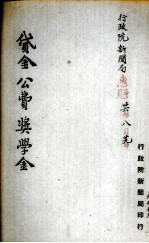 行政院新聞局
其八先
貸金公費獎學金
行政院新聞局印行